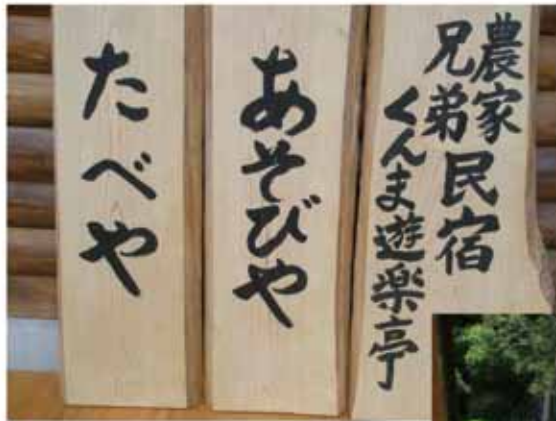 農家
兄弟民宿
くんま遊楽亭
あそびや
たべや